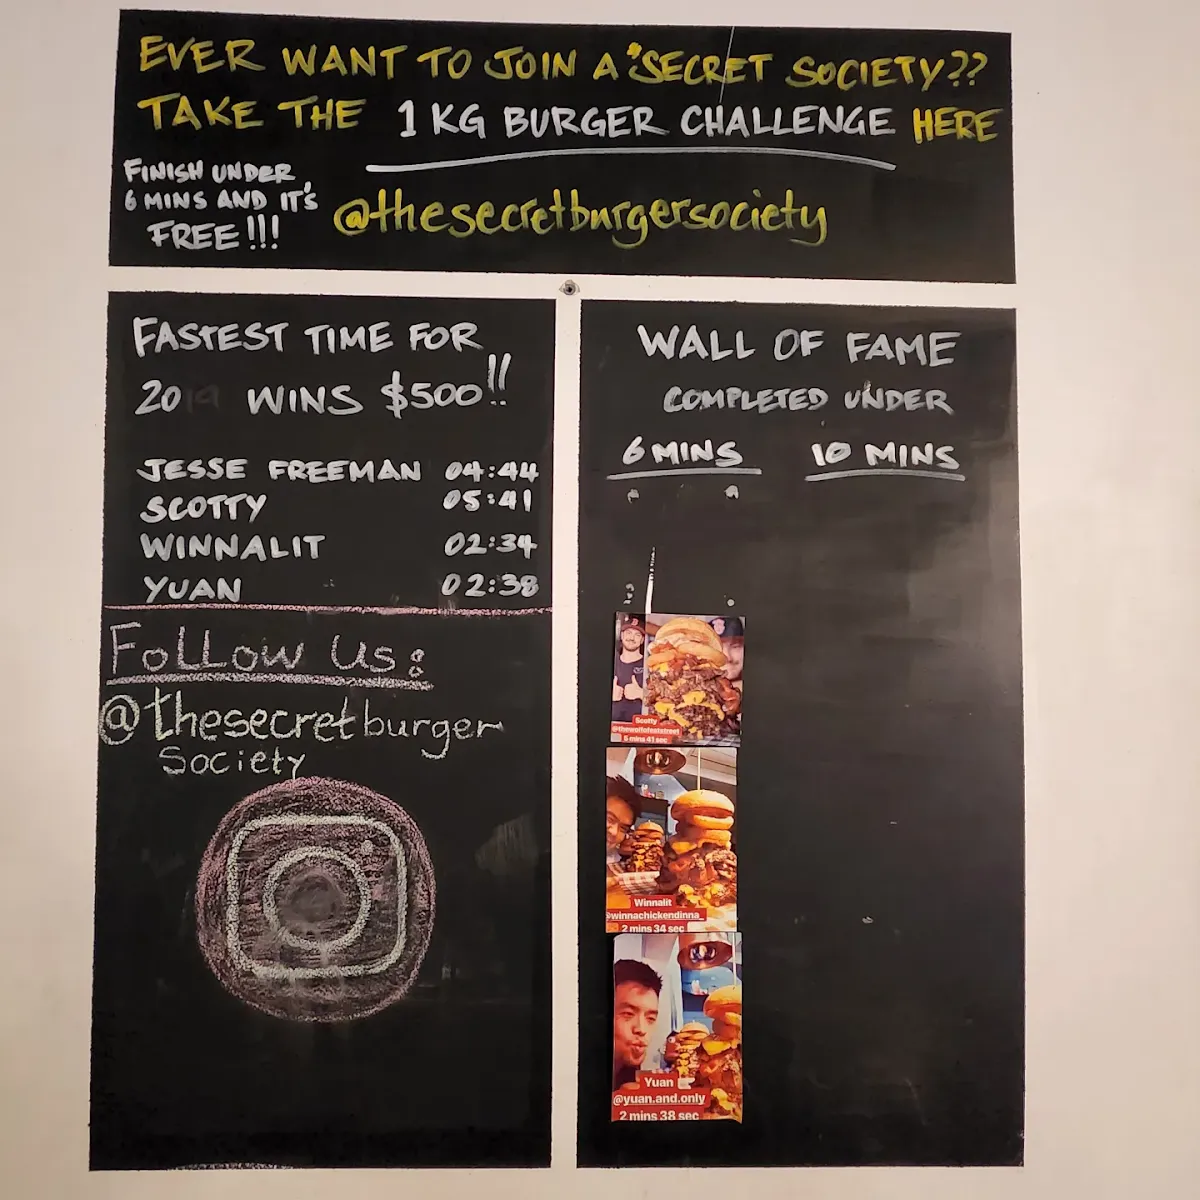 EVER WANT TO JOIN A "SECRET SOCIETY??
TAKE THE 1 KG BURGER CHALLENGE HERE
FINISH UNDER
6 MINS AND IT'S
FREE!!!
@thesecretburgersociety
FASTEST TIME FOR
2019 WINS $500!!
JESSE FREEMAN 04:44
SCOTTY 05:41
WINNALIT 02:34
YUAN 02:38
FOLLOW US:
@thesecretburger
Society
WALL OF FAME
COMPLETED UNDER
6 MINS 10 MINS
Scotty
@thewolfofeatstreet
5 mins 41 sec
Winnalit
@winnachickendinna_
2 mins 34 sec
Yuan
@yuan.and.only
2 mins 38 sec